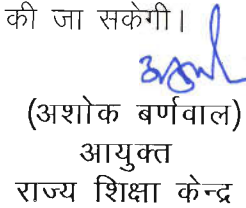 की जा सकेगी।
(अशोक बर्णवाल)
आयुक्त
राज्य शिक्षा केन्द्र